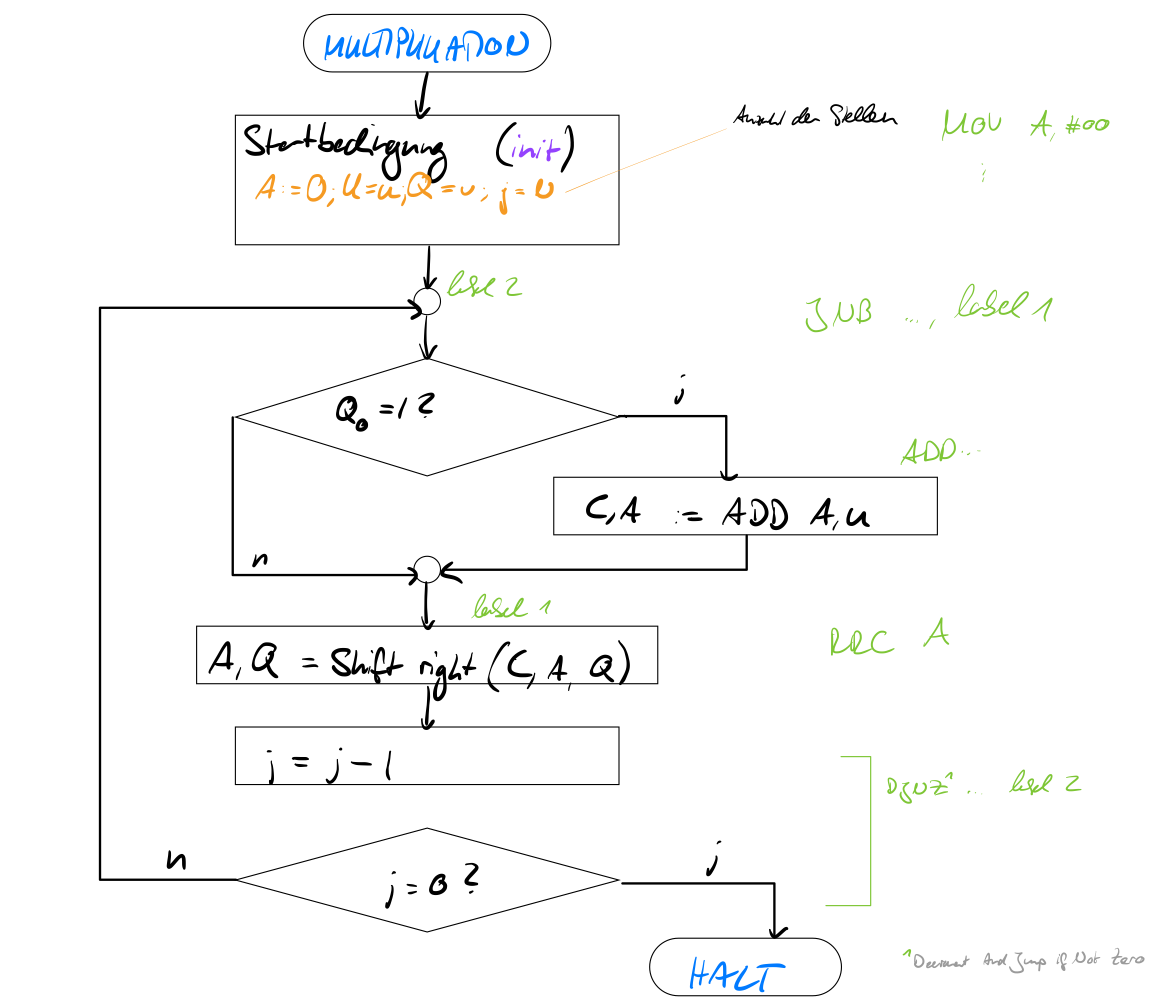 MULTIPLIKATION
Startbedingung (init)
A:=0; U=u; Q=v; j=v
Anzahl der Stellen
MOV A, #00
label 2
JNB ..., label 1
Q₀ = 1 ?
j
ADD...
C, A := ADD A, u
n
label 1
A, Q = Shift right (C, A, Q)
RRC A
j = j - 1
DJNZ¹ ... label 2
j = 0 ?
n
j
HALT
¹Decrement And Jump if Not Zero